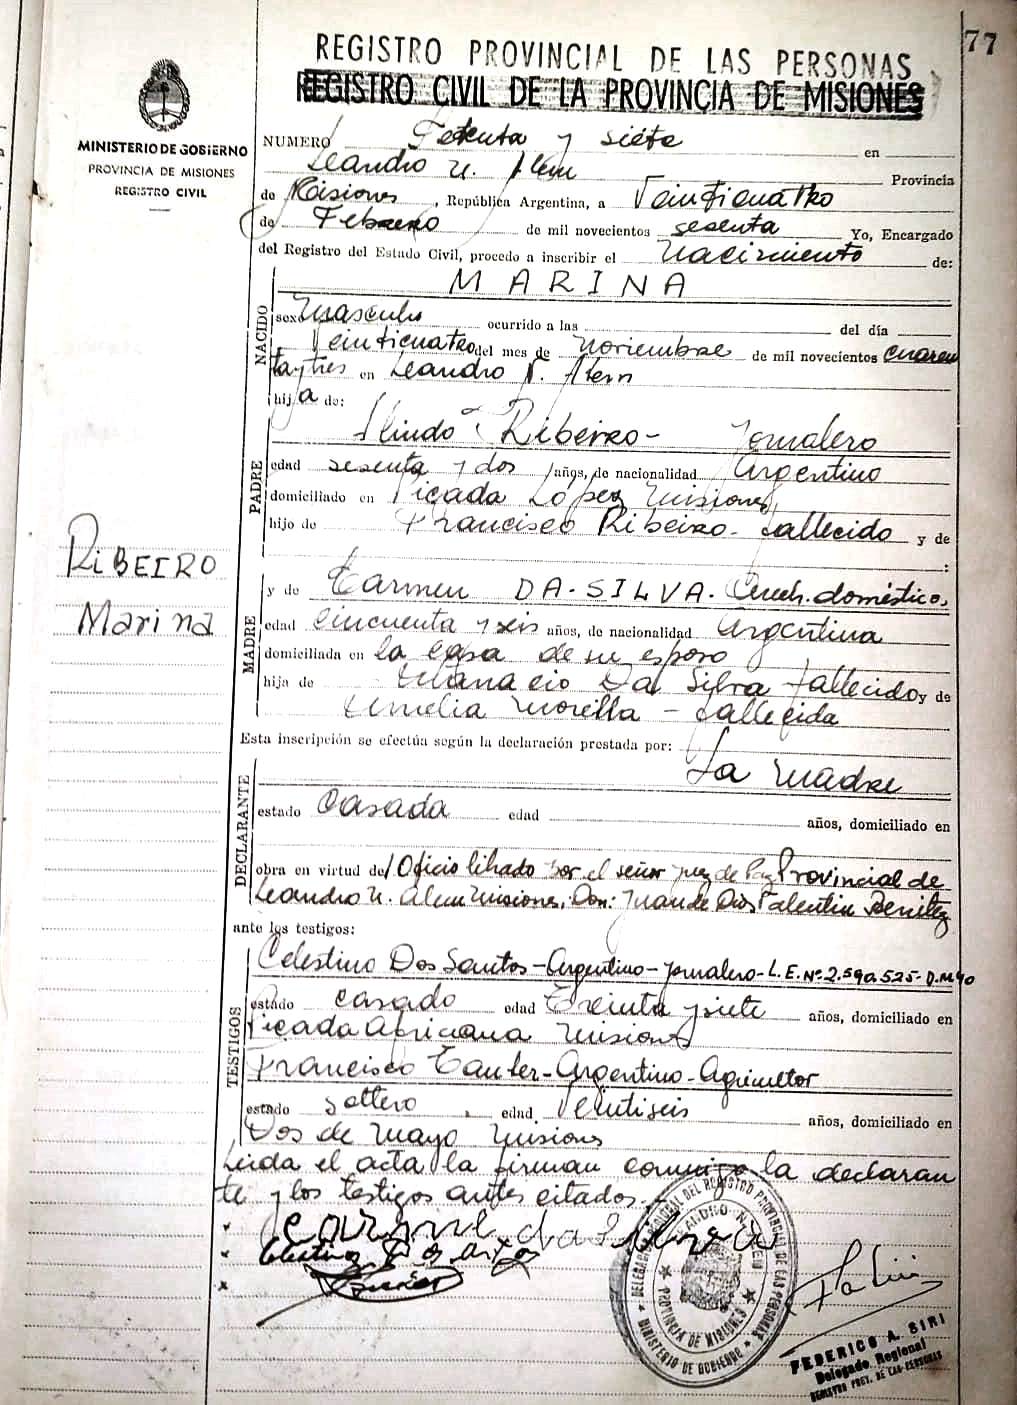 77
REGISTRO PROVINCIAL DE LAS PERSONAS
REGISTRO CIVIL DE LA PROVINCIA DE MISIONES
MINISTERIO DE GOBIERNO
PROVINCIA DE MISIONES
REGISTRO CIVIL
NUMERO Setenta y siete en
Leandro N. Alem Provincia
de Misiones, República Argentina, a Veinticuatro
de Febrero de mil novecientos sesenta Yo, Encargado
del Registro del Estado Civil, procedo a inscribir el Nacimiento de:
MARINA
NACIDO
sexo Masculno ocurrido a las del día
Veinticuatro del mes de Noviembre de mil novecientos cuaren
ta y tres en Leandro N. Alem
hija de:
PADRE
Alindo Ribeiro - Jornalero
edad sesenta y dos años, de nacionalidad Argentino
domiciliado en Picada López Misiones
hijo de Francisco Ribeiro - fallecido y de
:
RIBEIRO
Marina
MADRE
y de Carmen DA-SILVA. Queh. doméstico,
edad Cincuenta y seis años, de nacionalidad Argentina
domiciliada en la casa de su esposo
hija de Da Silva fallecido y de
Amelia Morella - fallecida
Esta inscripción se efectúa según la declaración prestada por:
La Madre
DECLARANTE
estado Casada edad años, domiciliado en
obra en virtud de Oficio librado por el señor Juez de Paz Provincial de
Leandro N. Alem Misiones, Don: Juan de Dios Valentin Benitez
ante los testigos:
TESTIGOS
Celestino Dos Santos - Argentino - Jornalero - L.E. Nº 2.590.525 - D.M. 40
estado casado edad Treinta y siete años, domiciliado en
Picada Africana Misiones
Francisco Tauber - Argentino - Agricultor
estado soltero, edad Veintiseis años, domiciliado en
Dos de Mayo Misiones
Leida el acta la firman conmigo la declaran
te y los testigos antes citados.
x carme da silva
x Celestino Dos antos
x
DELEGACION REGIONAL DEL REGISTRO PROVINCIAL DE LAS PERSONAS
LEANDRO N. ALEM
PROVINCIA DE MISIONES
MINISTERIO DE GOBIERNO
FEDERICO A. SIRI
Delegado Regional
REGISTRO PROV. DE LAS PERSONAS